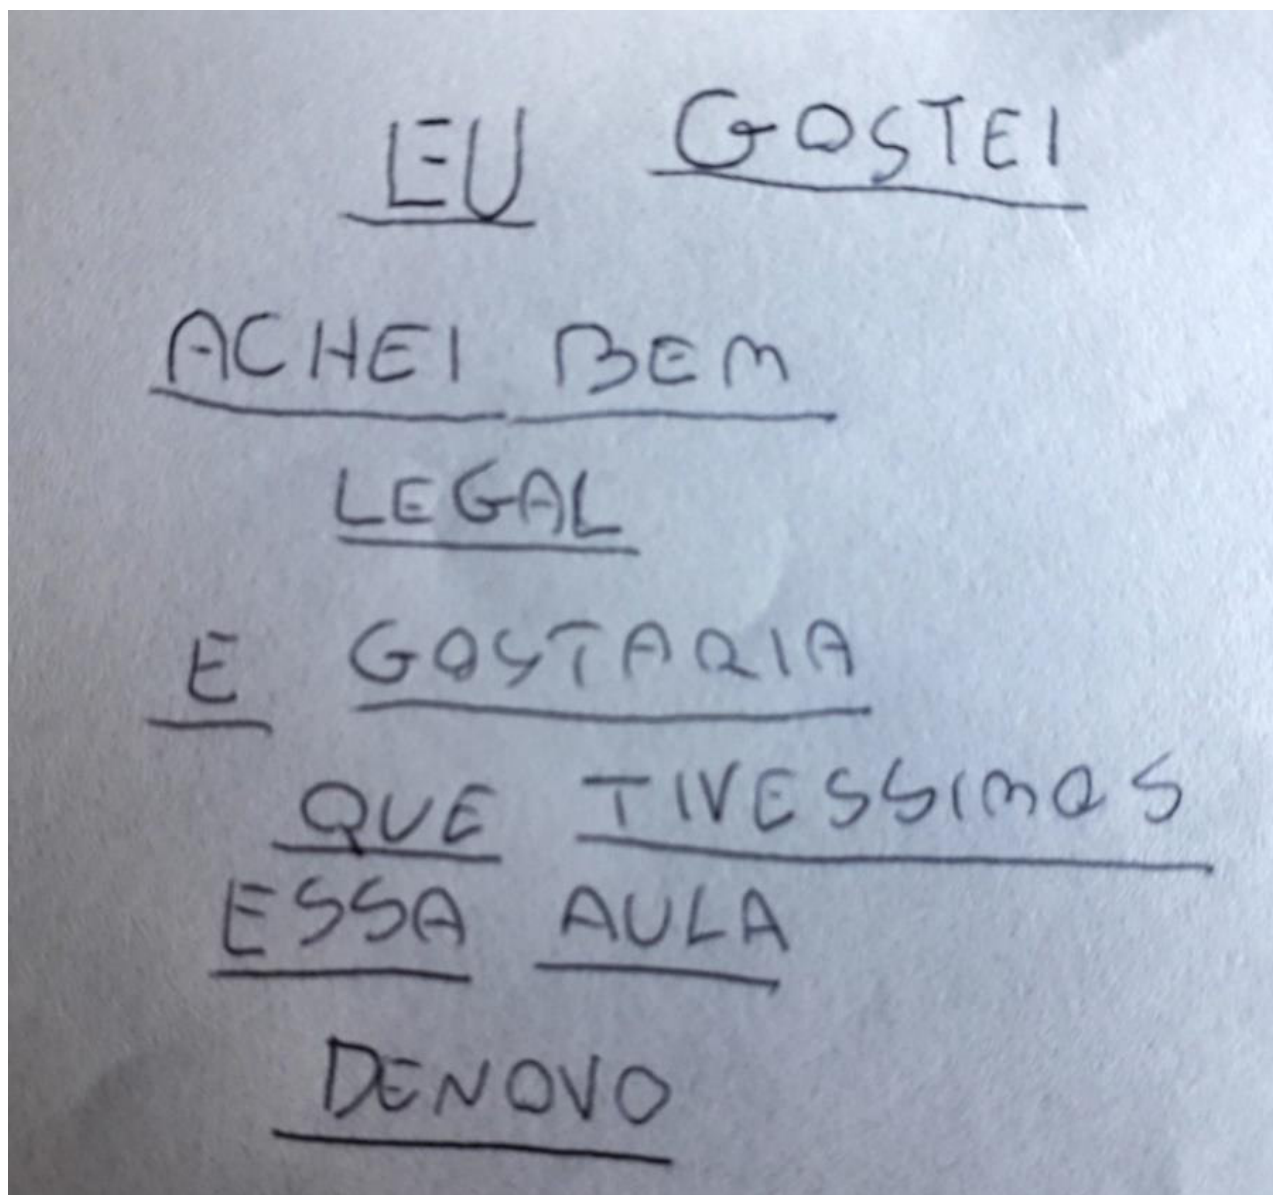 EU GOSTEI
ACHEI BEM
LEGAL
E GOSTARIA
QUE TIVESSIMOS
ESSA AULA
DENOVO